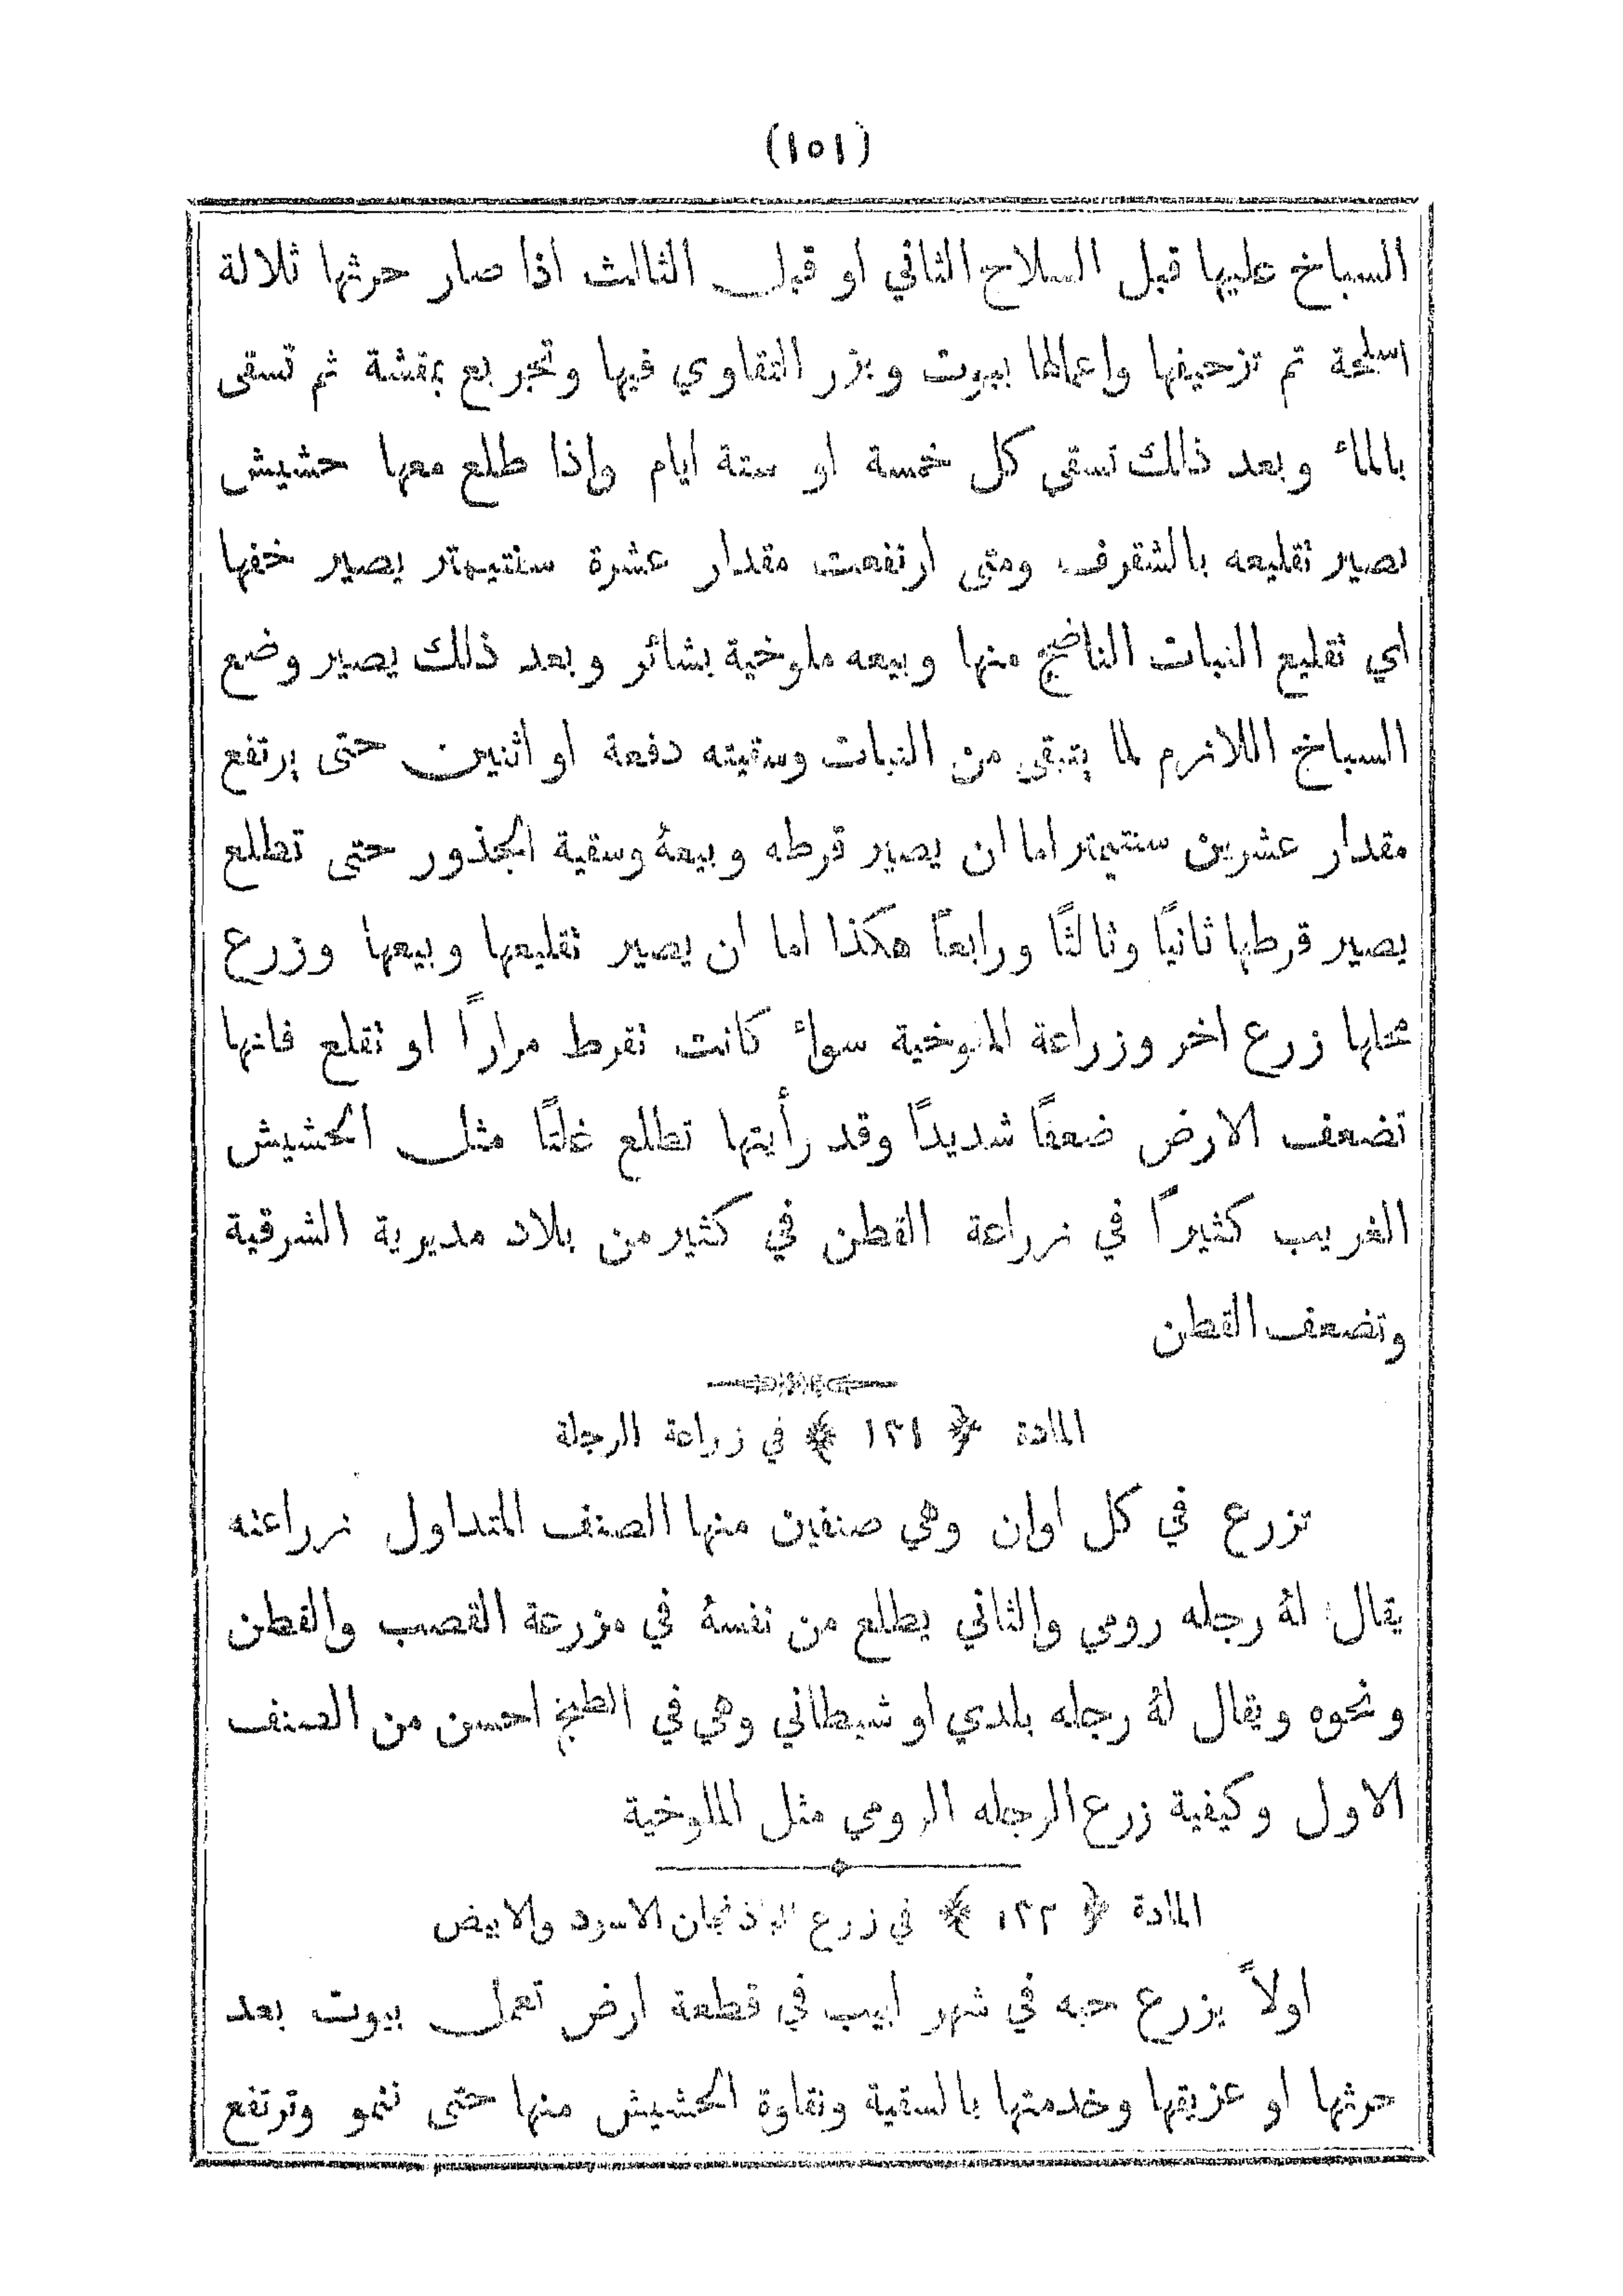 (١٥١)
السباخ عليها قبل السلاح الثاني او قبل الثالث اذا صار حرثها ثلاثة
اسلحة تم تزحيفها واعمالها بيوت وبزر التقاوي فيها وتجربع بمقشة ثم تسقى
بالماء وبعد ذالك تسقى كل خمسة او ستة ايام واذا طلع معها حشيش
يصير نقليعه بالشقرف ومتى ارتفعت مقدار عشرة سنتيمتر يصير خفها
اي نقليع النبات الناضج منها وبيعه ملوخية بشائر وبعد ذلك يصير وضع
السباخ اللازم لما يتبقى من النبات وسقيته دفعة او اثنين حتى يرتفع
مقدار عشرين سنتيمتر اما ان يصير قرطه وبيعهُ وسقية الجذور حتى تطلع
يصير قرطها ثانيًا وثالثًا ورابعًا هكذا اما ان يصير نقليعها وبيعها وزرع
محلها زرع اخر وزراعة الملوخية سواء كانت نقرط مرارًا او نقلع فانها
تضعف الارض ضعفًا شديدًا وقد رأيتها تطلع غلتًا مثل الحشيش
الغريب كثيرًا في زراعة القطن في كثير من بلاد مديرية الشرقية
وتضعف القطن
المادة ﴿ ١٢١ ﴾ في زراعة الرجلة
تزرع في كل اوان وهي صنفين منها الصنف المتداول زراعته
يقال لهُ رجله رومي والثاني يطلع من نفسهُ في مزرعة القصب والقطن
ونحوه ويقال لهُ رجله بلدي او شيطاني وهي في الطبخ احسن من الصنف
الاول وكيفية زرع الرجله الرومي مثل الملوخية
المادة ﴿ ١٢٢ ﴾ في زرع الباذنجان الاسود والابيض
اولاً يزرع حبه في شهر ابيب في قطعة ارض تعمل بيوت بعد
حرثها او عزيقها وخدمتها بالسقية ونقاوة الحشيش منها حتى ننمو وترتفع